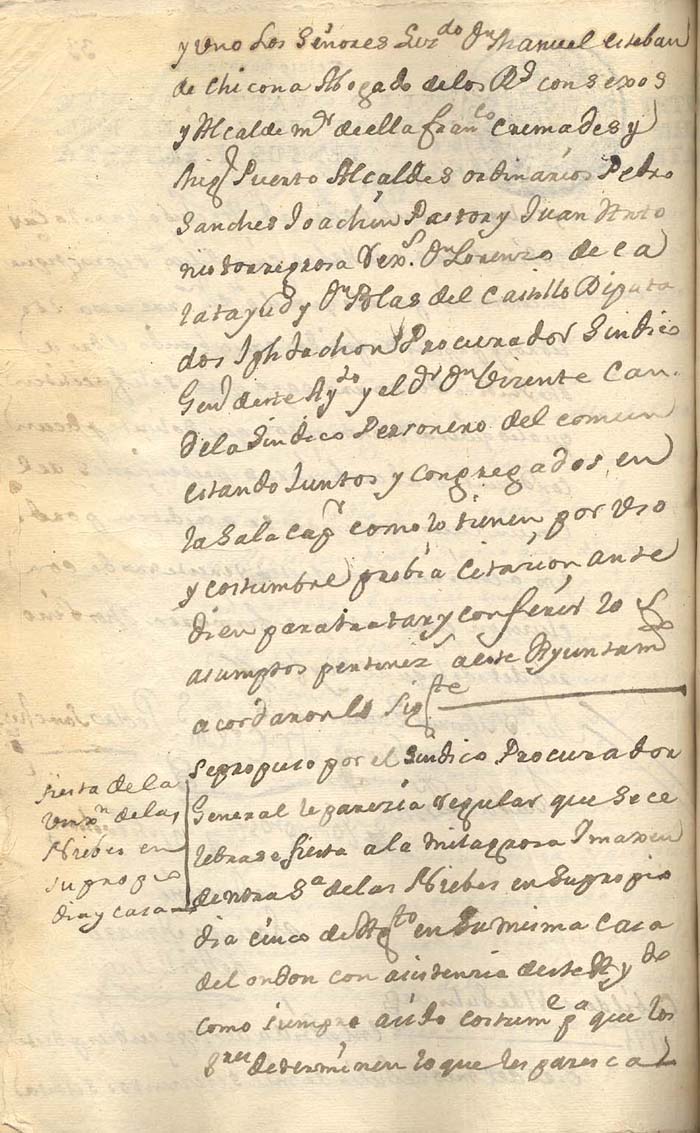 y uno los Señores Liz.do Dn Manuel Esteban
de Chicona Abogado de los Rs consexos
y Alcalde mor de ella Franco Cremades y
Migl Puerto Alcaldes ordinarios Pedro
Sanches Joachin Pastor y Juan Anto
nio torregrosa Rexs Dn Lorenzo de Ca
latayud y Dn Blas del Castillo Diputa
dos Jph Jachon Procurador Sindico
Genl de este Ayto y el Dr Dn Vizente Can
dela Sindico Personero del comun
estando Juntos y congregados en
la Sala Capr como lo tienen por uso
y costumbre prebia citazion ante
diem para tratar y conferir lo s
asumptos pertinez a este Ayuntamto
acordaron lo Sigte
Se propuso por el Sindico Procurador
General le parezia regular que se ce
lebrase fiesta a la milagrosa Imaxen
de Ntra Sa de las Niebes en su propio
dia cinco de Agto en su misma Casa
del ondon con asistenzia de este Ayto
como siempre a sido costume pa que los
Sres determinen lo que les paresca
fiesta de la
Virxn de las
Niebes en
su propio
dia y casa